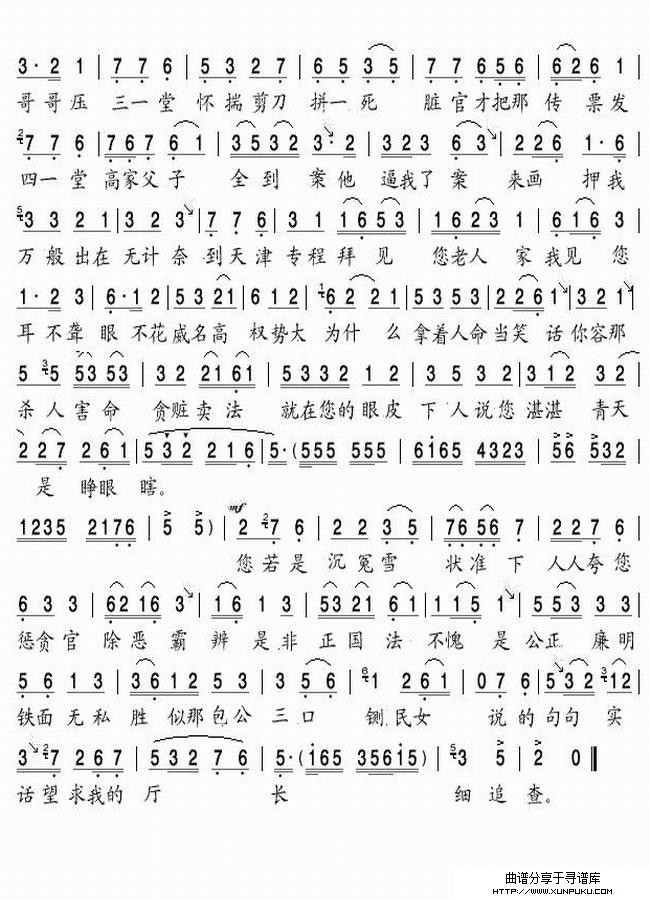 3·2 1 | 7 7 6 | 5 3 2 7 | 6 5 3 5 | 7 7 6 5 6 | 6 2 6 1 |
哥哥压 三一堂 怀揣剪刀 拼一死 脏官才把那 传票发
2 7 7 6 | 7 6 7 6 1 | 3 5 3 2 3·2 | 3 2 3 6 3 | 2 2 6 1·6 |
四一堂 高家父子 全到 案他 逼我了 案 来画 押我
5 3 3 2 1 | 3 2 3 | 7 7 6 | 3 1 1 6 5 3 | 1 6 2 3 1 | 6 1 6 3 |
万般出在 无计奈 到天津 专程拜见 您老人 家我见 您
1·2 3 | 6·1 2 | 5 3 2 1 | 6 1 2 | 1 6 2 2 1 | 5 3 5 3 2 2 6 1 | 3 2 1 |
耳不聋 眼不花 威名高 权势大 为什么 拿着人命当笑话 你容那
5 3 5 5 3 5 3 | 3 2 2 1 6 1 | 5 3 3 2 1 2 | 3 5 3 2 | 3 1 2 3 2 |
杀人害命 贪赃卖法 就在您的眼皮 下人说您 湛湛青天
2 2 7 2 6 1 | 5 3 2 2 1 6 | 5·(5 5 5 5 5 5 | 6 1 6 5 4 3 2 3 | 5 6 5 3 2 |
是睁眼瞎。
1 2 3 5 2 1 7 6 | 5 5) | mf 2 2 7 6 | 2 2 3 5 | 7 6 5 6 7 | 2 2 7 6 |
您若是 沉冤雪 状准下 人人夸您
6 3 3 | 6 2 1 6 3 | 1 6 1 3 | 5 3 2 1 6 1 | 1 1 5 1 | 5 5 3 3 3 |
惩贪官 除恶霸 辨是非 正国法 不愧是 公正廉明
5 6 1 3 | 3 6 1 2 5 3 | 3 5 6 | 6 1 2 6 1 | 0 7 6 | 5 3 2 3 1 2 |
铁面无私 胜似那包公 三口 铡.民女 说的句句实
3 2 7 2 6 7 | 5 3 2 7 6 | 5·(1 6 5 3 5 6 1 5) | 5 3 5 | 2 0 ‖
话望求我的 厅 长 细追查。
曲谱分享于寻谱库
HTTP://WWW.XUNPUKU.COM